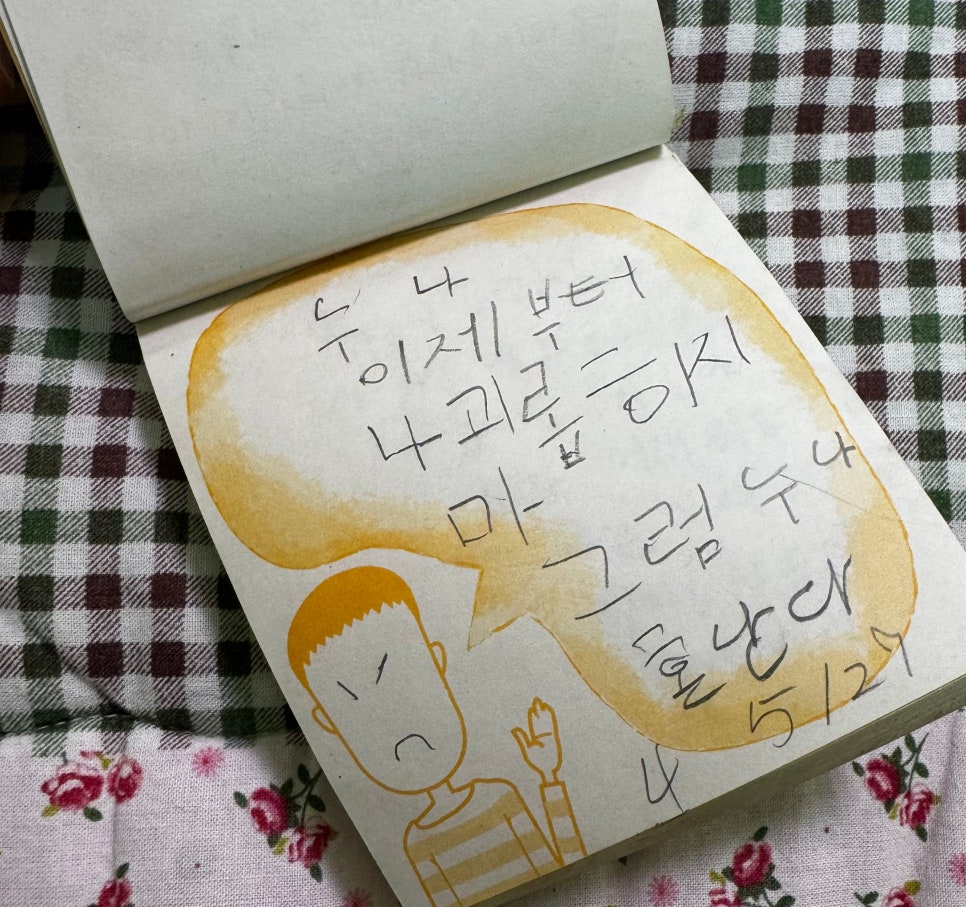 누나
이제부터
나 괴롭히지
마 그럼 누나
혼난다
5/27
4